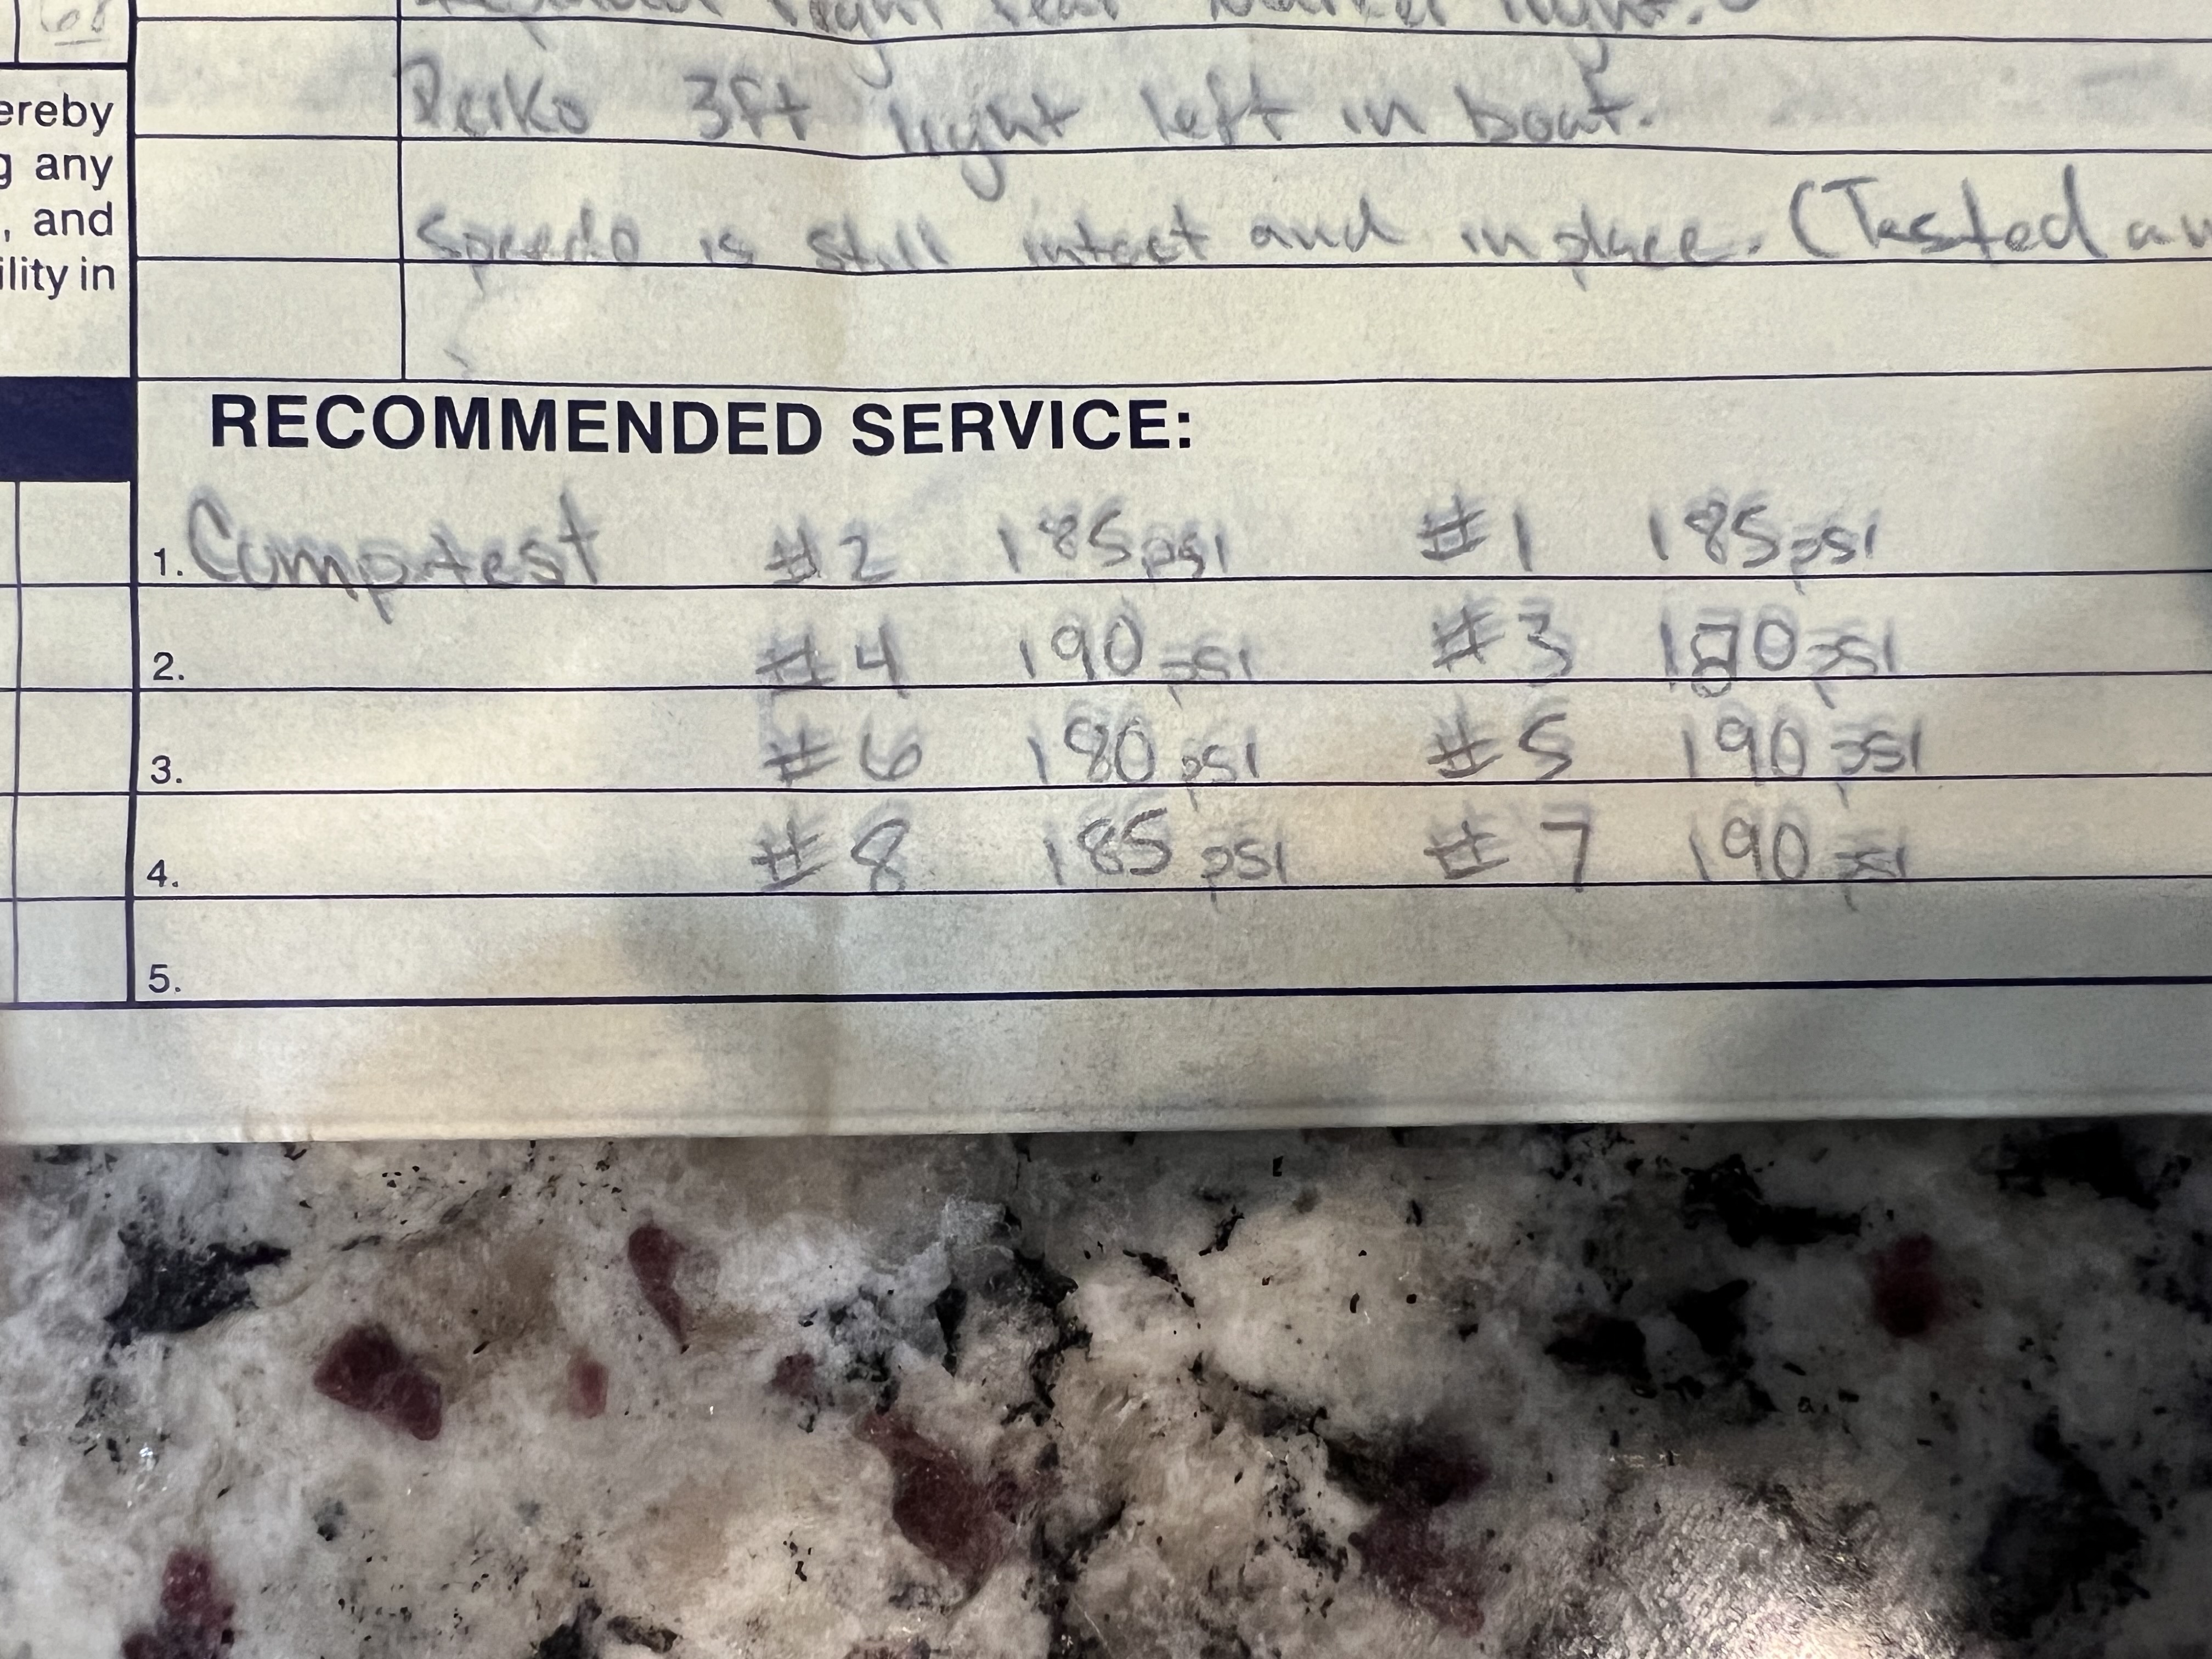 right rear marker light.
ereby
Reiko 3ft light left in boat.
g any
, and
speedo is still intact and in place. (Tested an
ility in
RECOMMENDED SERVICE:
1. Comp test #2 185psi #1 185psi
2. #4 190 psi #3 180psi
3. #6 180 psi #5 190 psi
4. #8 185 psi #7 190 psi
5.